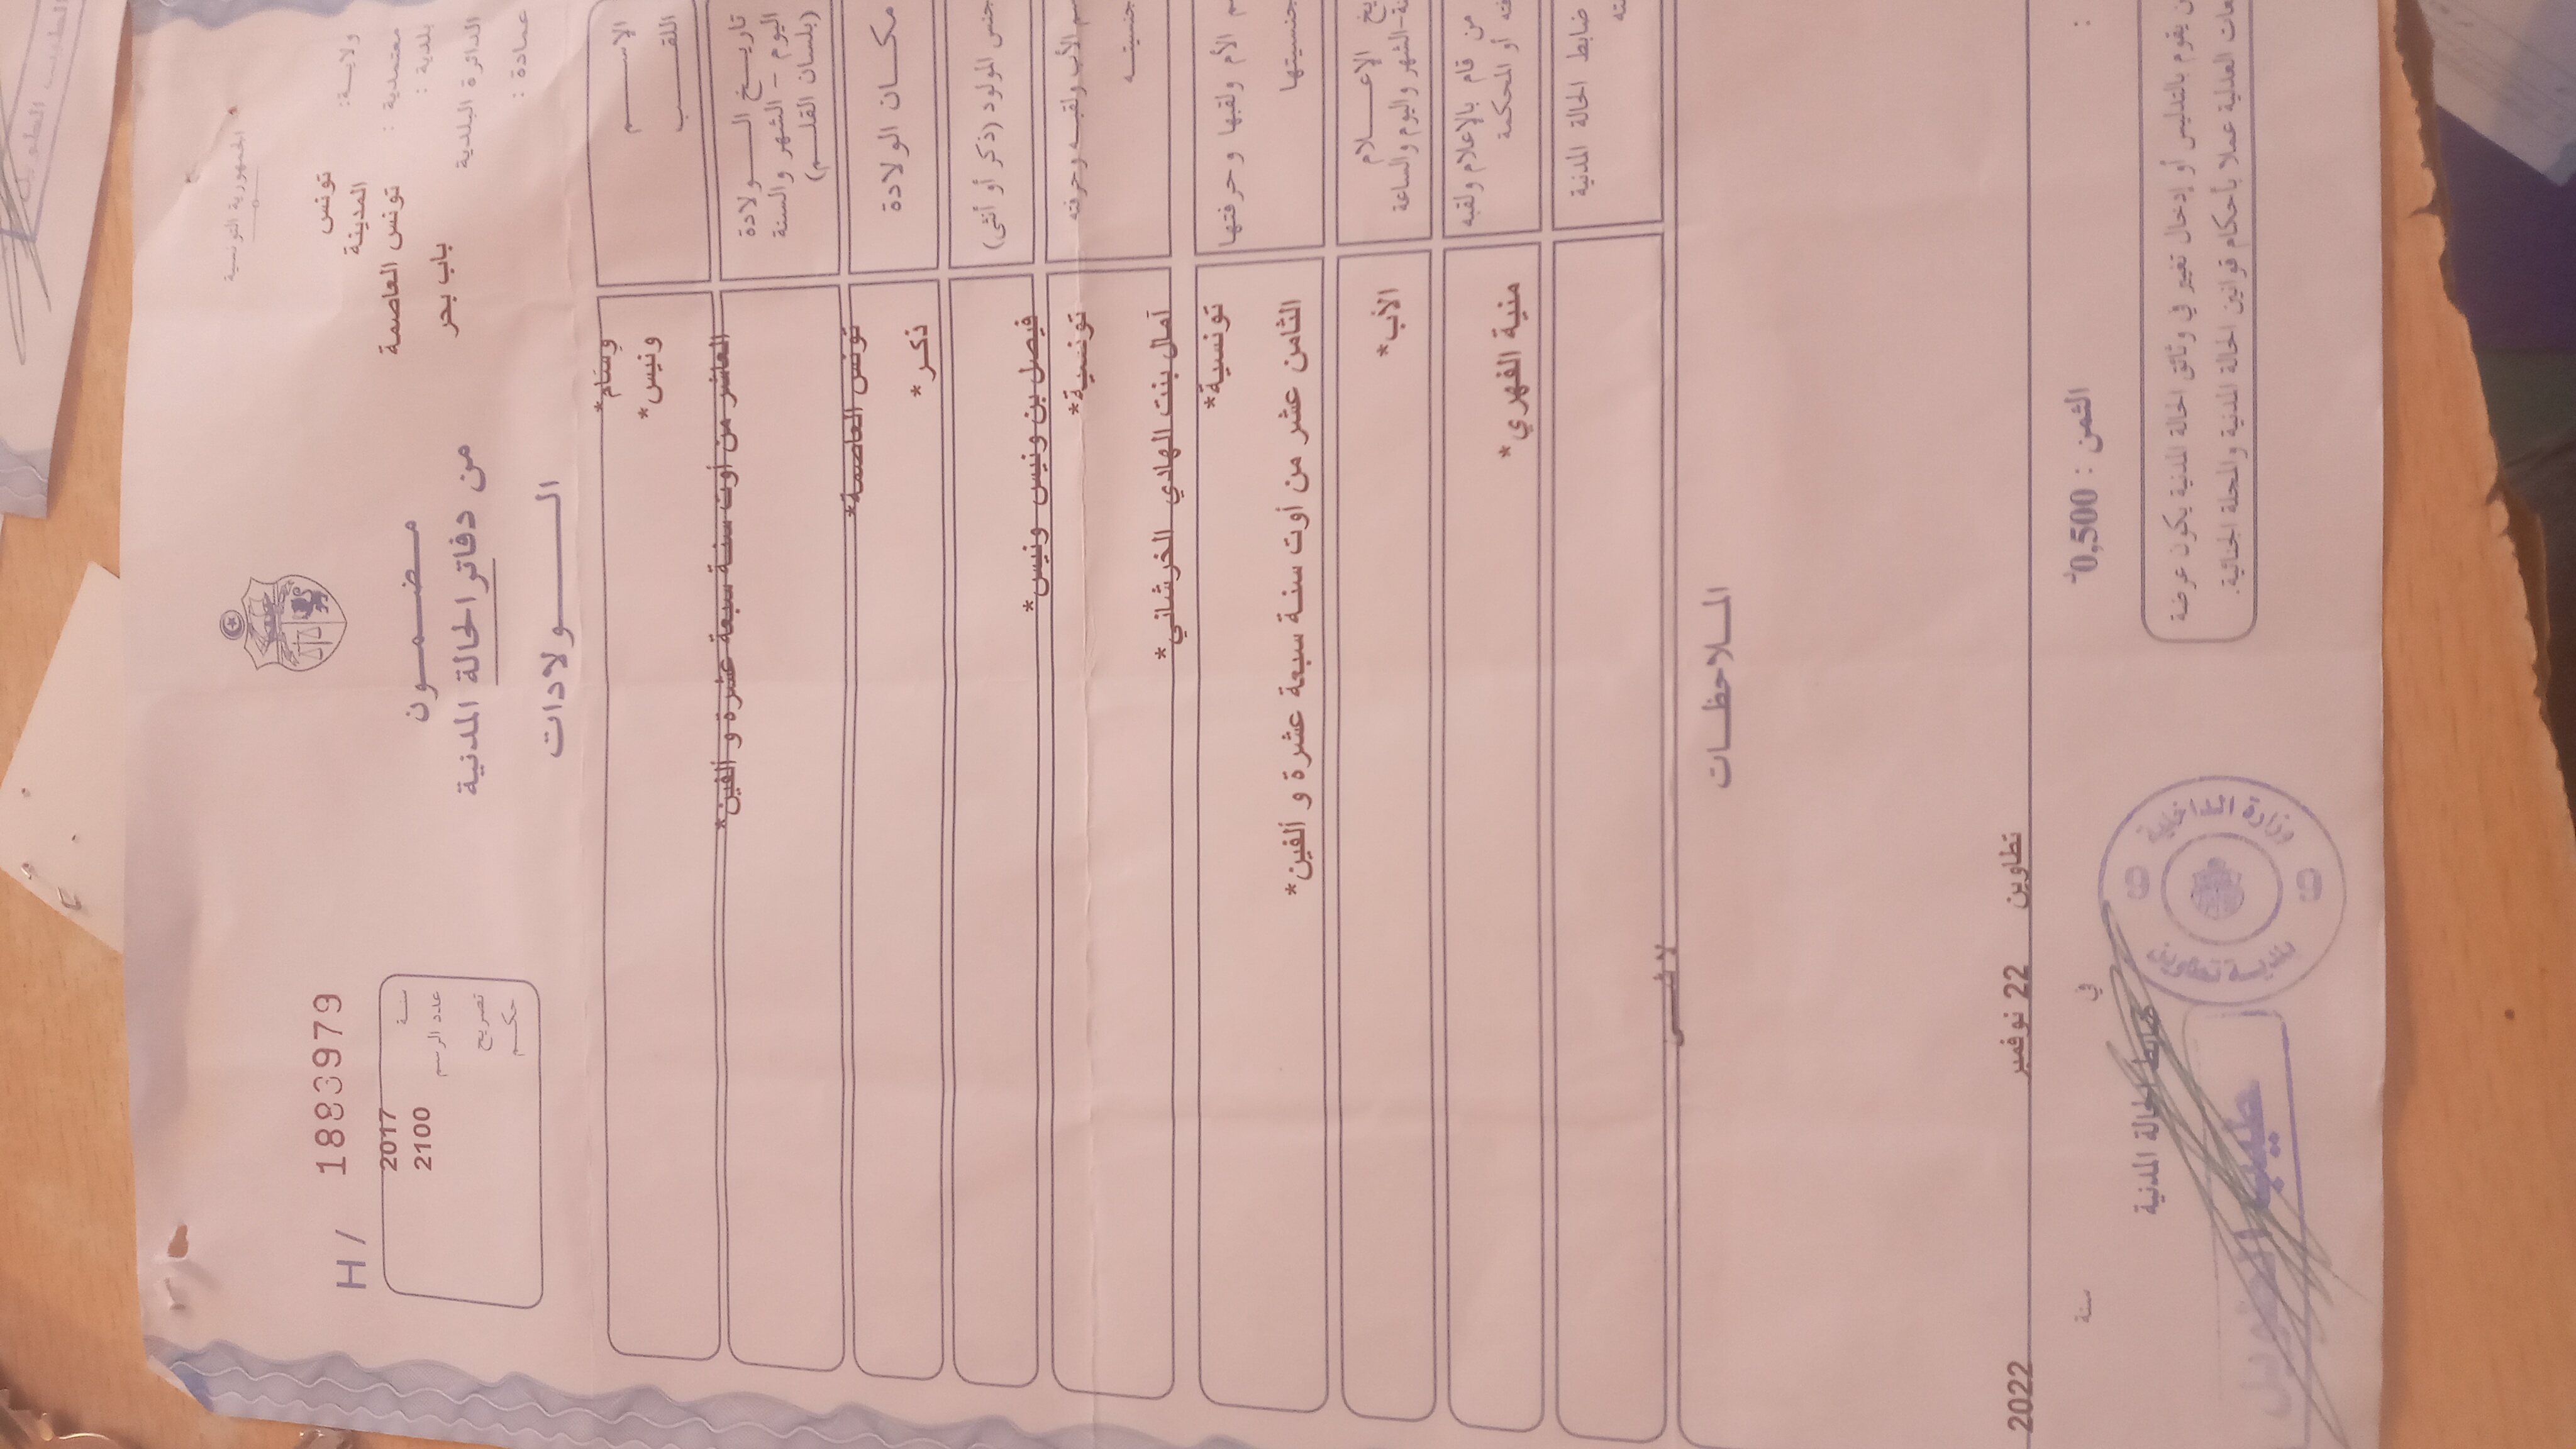 الجمهورية التونسية
ولايـة: تونس
معتمدية : المدينة
بلدية : تونس العاصمة
الدائرة البلدية باب بحر
عمادة :
H/ 1883979
سنـة 2017
عدد الرسم 2100
تصريح
حكـم
مـضـمـــون
من دفاتر الحالة المدنية
الـــولادات
الإســـم وسام*
اللقـــب ونيس*
تاريـــخ الـــولادة
اليوم – الشهر والسنة
(بلسان القلـم)
العاشر من أوت سنة سبعة عشرة و ألفين*
مكـــان الولادة تونس العاصمة*
جنس المولود (ذكر أو أنثى) ذكر*
الأب ولقبـه وحرفته فيصل بن ونيس ونيس*
جنسيتـه تونسية*
الأم ولقبها وحرفتها آمال بنت الهادي الخرشاني*
جنسيتها تونسية*
الإعـــلام
الشهر واليوم والساعة
الثامن عشر من أوت سنة سبعة عشرة و ألفين*
من قام بالإعلام ولقبه
أو المحكمة
الأب*
ضابط الحالة المدنية
منية الفهري*
المـلاحظــات
تطاوين 22 نوفمبر 2022
في
سنة
الثمن : 0,500د
يقوم بالتدليس أو إدخال تغيير في وثائق الحالة المدنية يكون عرضة
العدلية عملا بأحكام قوانين الحالة المدنية والمجلة الجنائية.
ضابط الحالة المدنية
وزارة الداخلية
بلدية تطاوين